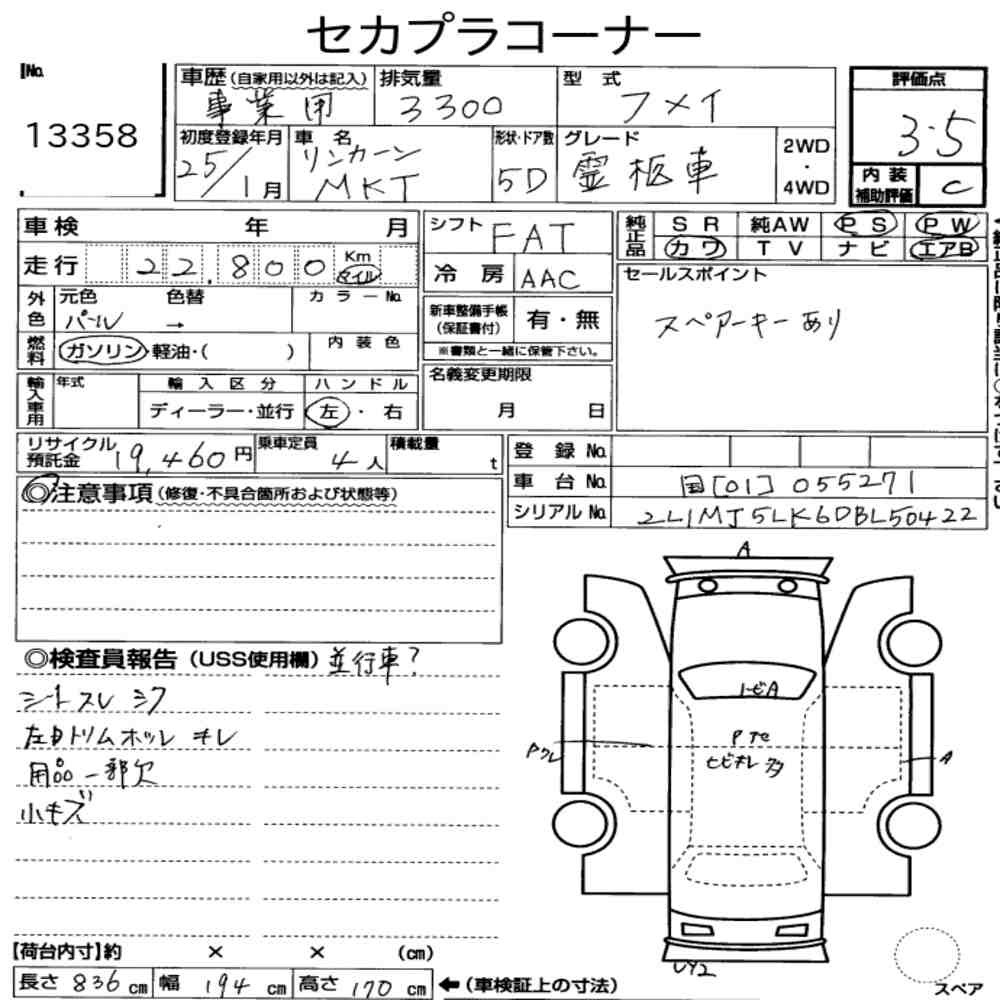 セカプラコーナー
No.
13358
車歴(自家用以外は記入)
事業用
排気量
3300
型 式
フメイ
評価点
3.5
初度登録年月
25/1月
車 名
リンカーン
MKT
形状・ドア数
5D
グレード
霊柩車
2WD
・
4WD
内装
補助評価
C
車検 年 月
走行 22,800 Km マイル
シフト FAT
冷房 AAC
純正品
SR 純AW PS PW
カワ TV ナビ エアB
外色
元色 色替 カラーNo.
パール →
燃料
ガソリン・軽油・( )
内装色
新車整備手帳
(保証書付)
有・無
※書類と一緒に保管下さい。
セールスポイント
スペアーキーあり
輸入車用
年式
輸入区分
ディーラー・並行
ハンドル
左・右
名義変更期限
月 日
リサイクル
預託金
19,460円
乗車定員
4人
積載量
t
登録No.
車台No. 国[01]055271
シリアルNo. 2L1MJ5LK6DBL50422
◎注意事項(修復・不具合箇所および状態等)
◎検査員報告(USS使用欄)並行車?
シートスレ シワ
左Dトリムホツレ キレ
用品一部欠
小キズ
A
トビA
Pテセ
ヒビキレ多
Pワレ
A
UY2
スペア
【荷台内寸】約 × × (cm)
長さ 836 cm 幅 194 cm 高さ 170 cm ←(車検証上の寸法)